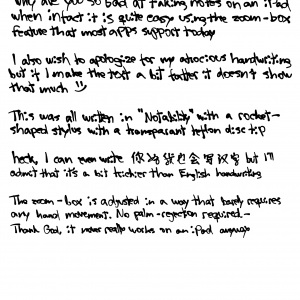 Why are you so bad at taking notes on an iPad
when infact it is quite easy using the zoom-box
feature that most apps support today
I also wish to apologize for my atrocious handwriting
but if I make the text a bit fatter it doesn't show
that much
This was all written in "Notability" with a rocket-
shaped stylus with a transparant teflon disc :P
heck, I can even write 会写汉字 but I'll
admit that it's a bit trickier than English handwriting
The zoom-box is adjusted in a way that barely requires
any hand movement. No palm-rejection required -
Thank God, it never really works on an iPad anyways